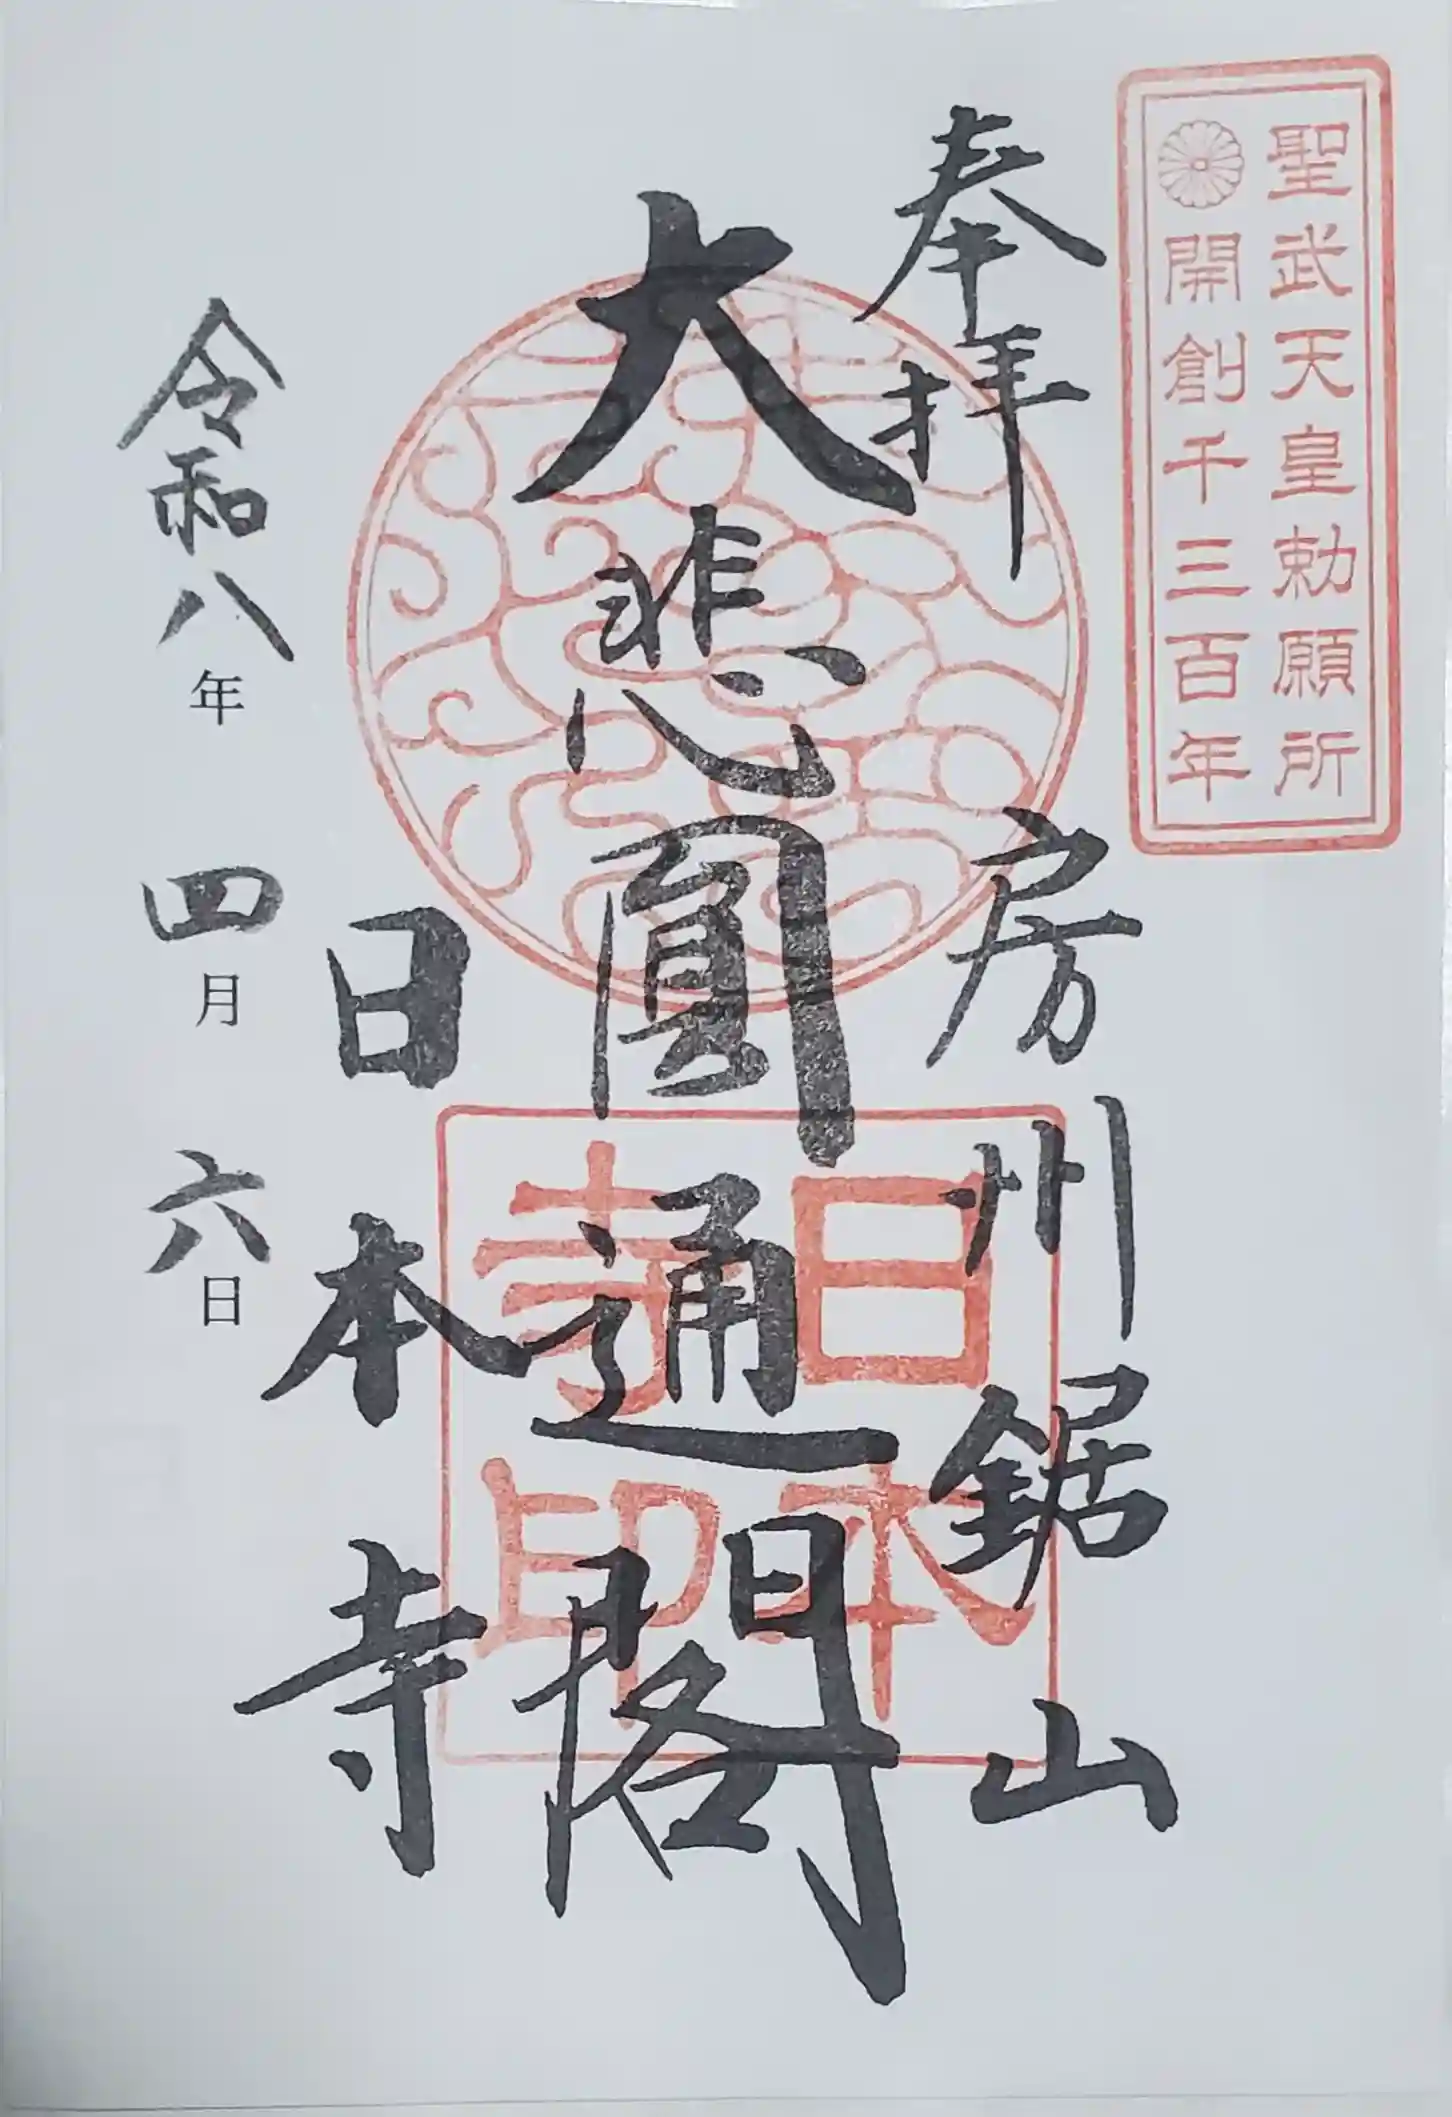 聖武天皇勅願所
開創千三百年
奉拝
房州鋸山
大悲圓通閣
日本寺
令和八年四月六日
日本
寺印